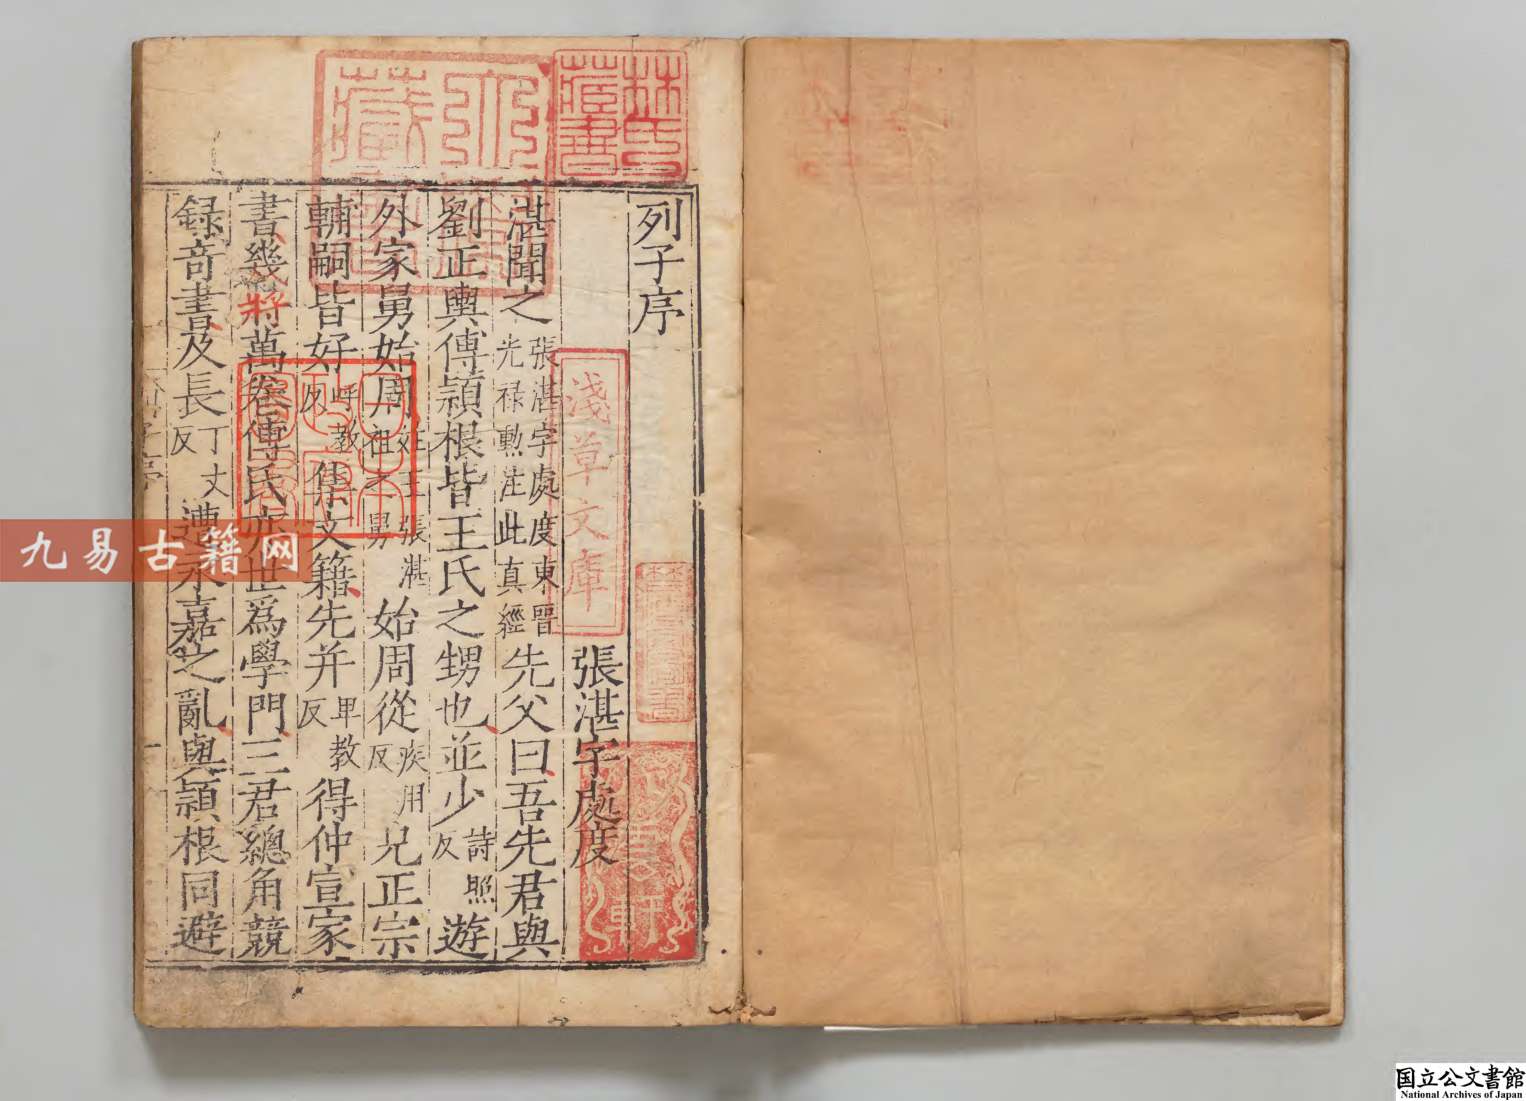 列子序
張湛字處度
湛聞之張湛字處度東晉光禄勲注此真經先父曰吾先君與
劉正輿傅頴根皆王氏之甥也並少詩照反遊
外家舅始周姓王張湛祖之舅始周從疾用反兄正宗
輔嗣皆好呼教反集文籍先并卑教反得仲宣家
書幾將萬卷傅氏亦世爲學門三君總角競
録奇書及長丁丈反遭永嘉之亂與頴根同避
林氏藏書
淺草文庫
日本政府圖書
九易古籍网
国立公文書館
National Archives of Japan